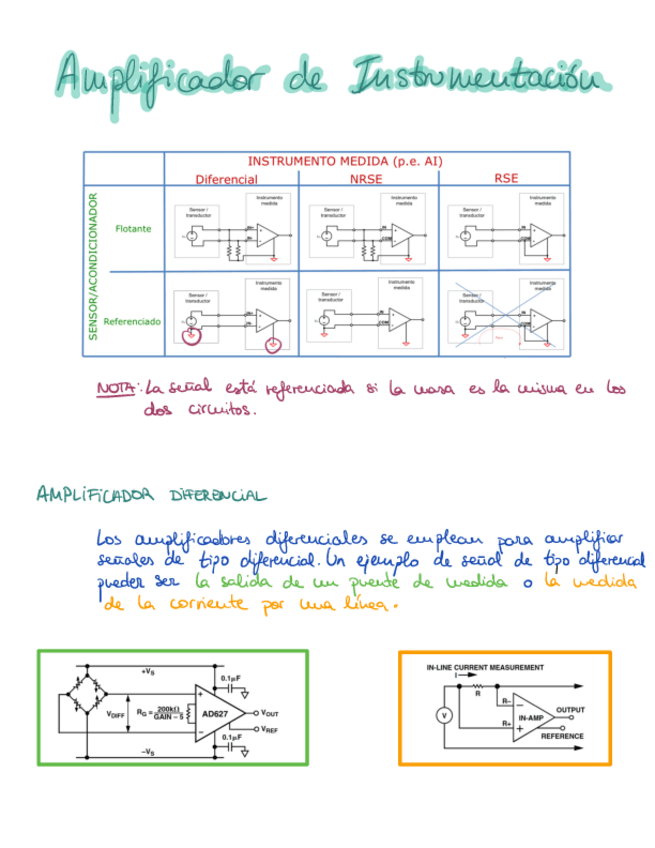 Amplificador de Instrumentación
INSTRUMENTO MEDIDA (p.e. AI)
Diferencial NRSE RSE
SENSOR/ACONDICIONADOR
Flotante
Sensor / transductor
Instrumento medida
Sensor / transductor
Instrumento medida
Sensor / transductor
Instrumento medida
Referenciado
Sensor / transductor
Instrumento medida
Sensor / transductor
Instrumento medida
Sensor / transductor
Instrumento medida
NOTA: La señal está referenciada si la masa es la misma en los
dos circuitos.
AMPLIFICADOR DIFERENCIAL
Los amplificadores diferenciales se emplean para amplificar
señales de tipo diferencial. Un ejemplo de señal de tipo diferencial
pueder ser la salida de un puente de medida o la medida
de la corriente por una línea.
+VS
0.1µF
VDIFF
RG = 200kΩ / GAIN – 5
AD627
VOUT
VREF
0.1µF
–VS
IN-LINE CURRENT MEASUREMENT
I
R
R–
V
IN-AMP
OUTPUT
R+
REFERENCE